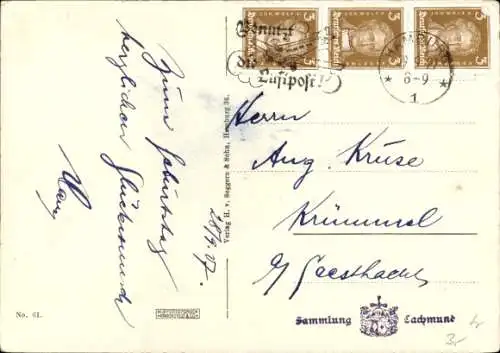 Zum Geburtstag
herzlichen Glückwunsch
28/9.07.
No. 61.
Verlag H. v. Seggern & Sohn, Hamburg 34.
Benutzt
die
Luftpost
3
3
3
Deutsches Reich
8-9
* 1 *
Herrn
Aug. Kruse
Krümmel
b/ Geesthacht
Sammlung Lachmund